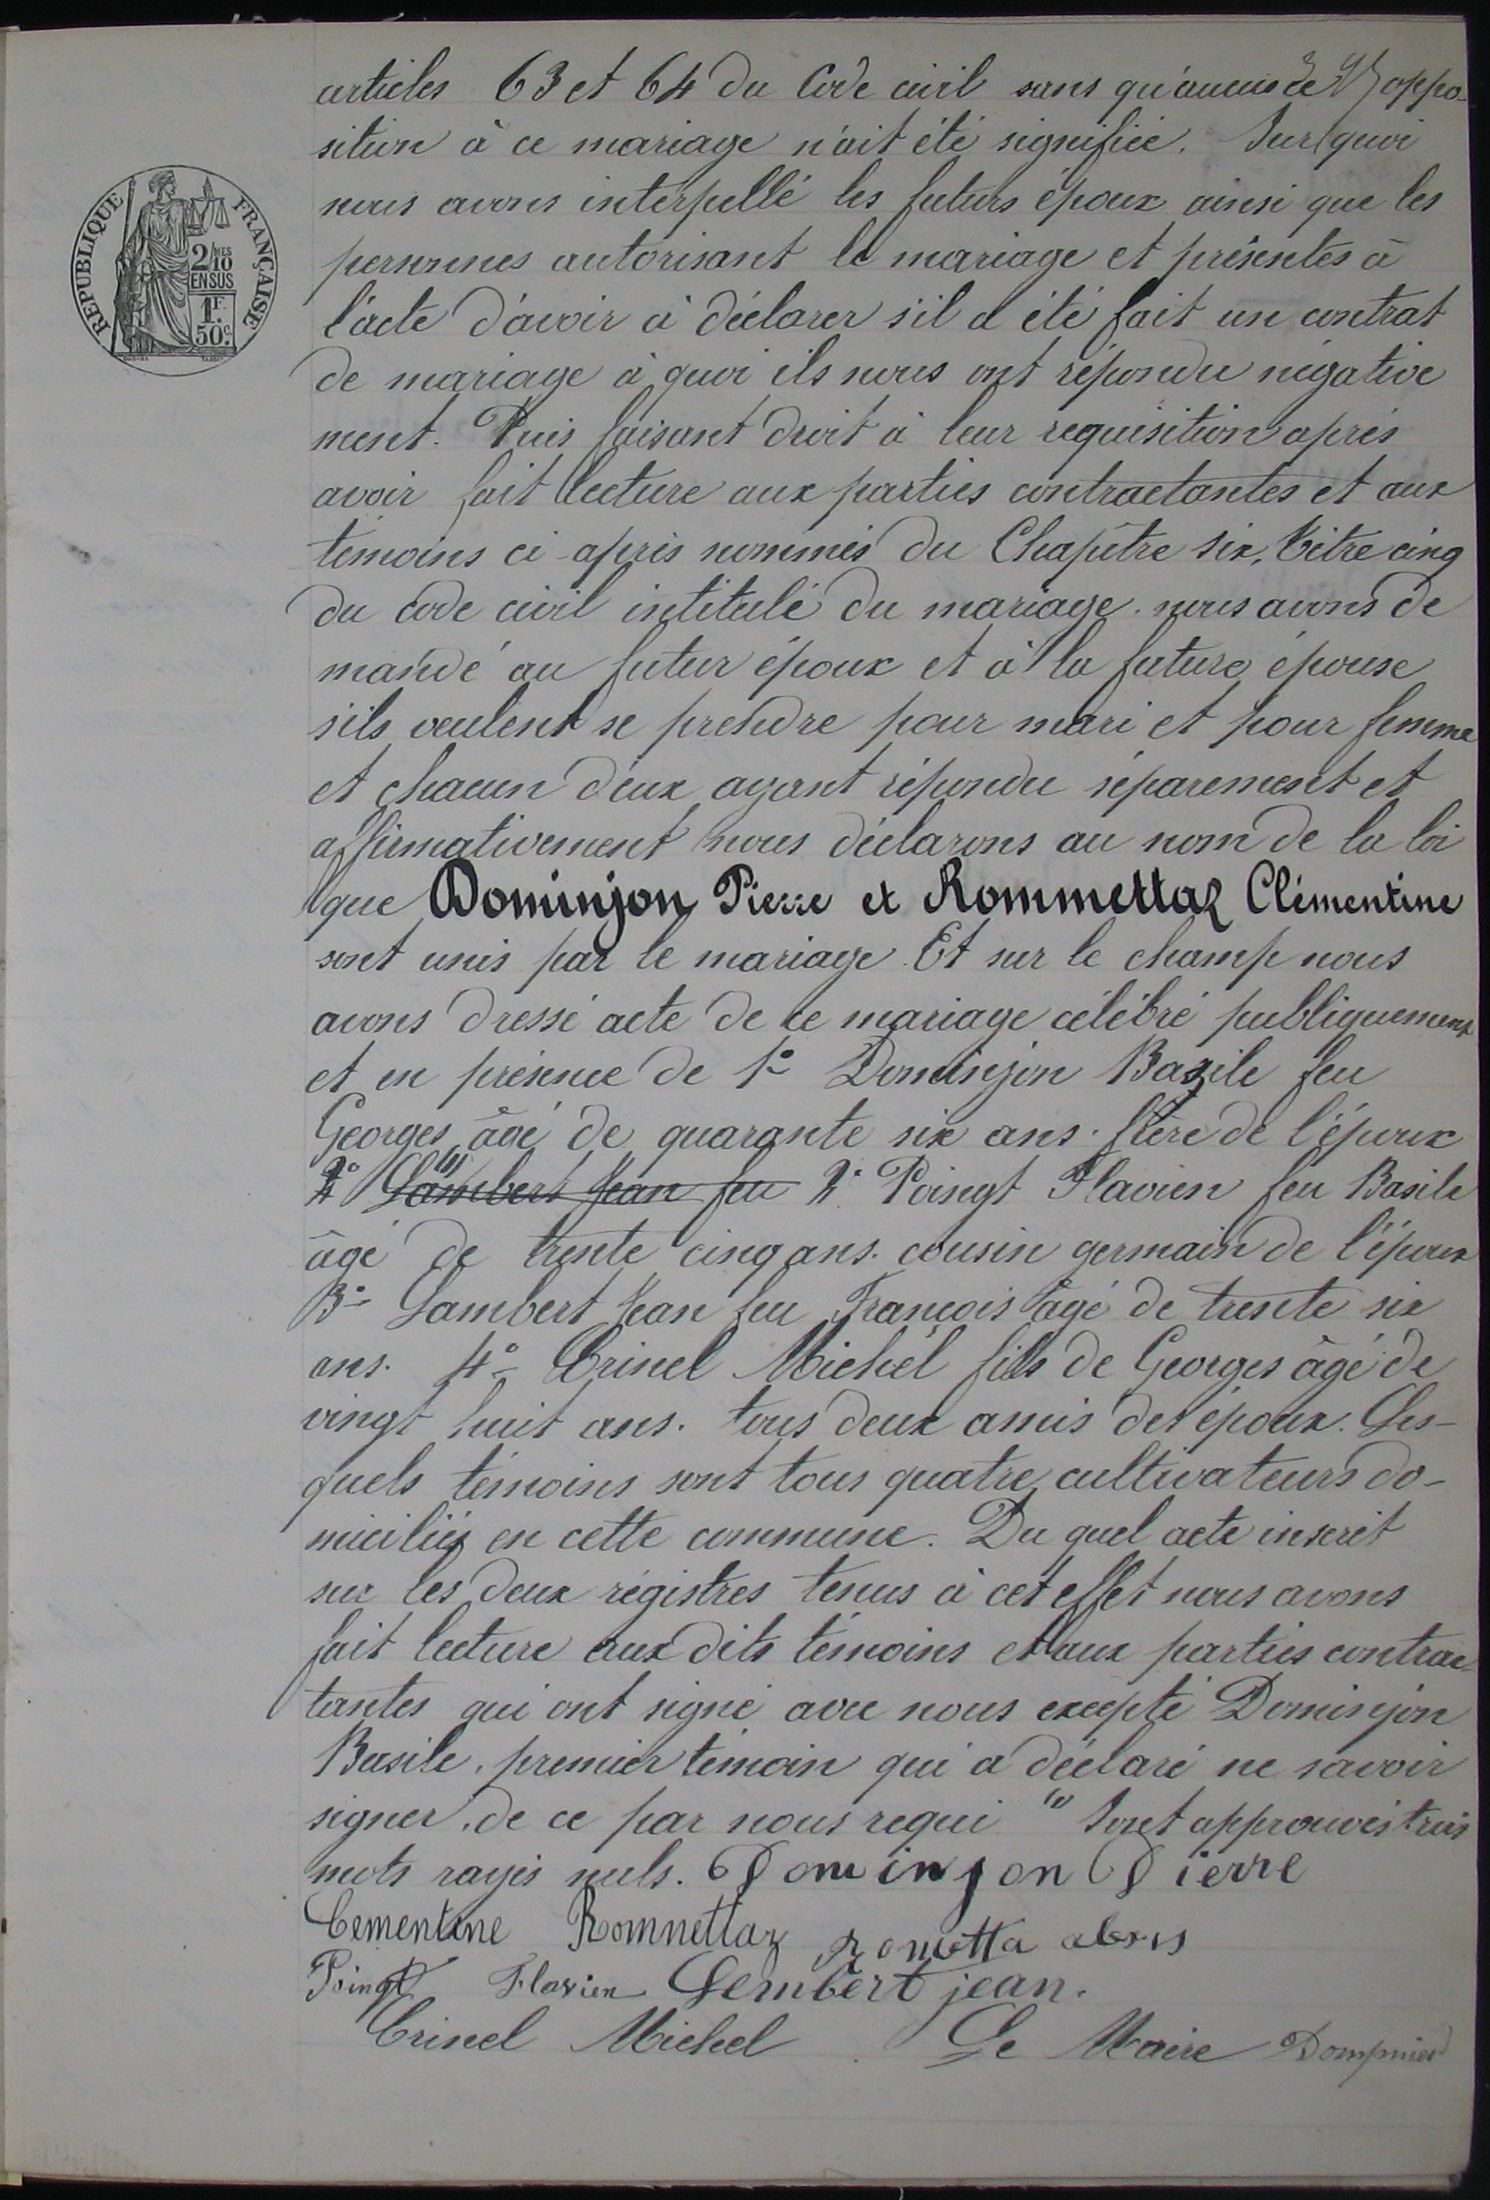 articles 63 et 64 du Code civil sans qu'aucune oppo-
sition à ce mariage n'ait été signifiée. Sur quoi
nous avons interpellé les futurs époux ainsi que les
personnes autorisant le mariage et présentes à
l'acte d'avoir à déclarer s'il a été fait un contrat
de mariage à quoi ils nous ont répondu négative
ment. Puis faisant droit à leur requisition après
avoir fait lecture aux parties contractantes et aux
témoins ci-après nommés du Chapître six, titre cinq
du code civil intitulé du mariage. nous avons de
mandé au futur époux et à la future épouse
s'ils veulent se prendre pour mari et pour femme
et chacun d'eux ayant répondu séparement et
affirmativement nous déclarons au nom de la loi
que Dominjon Pierre et Rommettaz Clémentine
sont unis par le mariage. Et sur le champ nous
avons dressé acte de ce mariage célébré publiquement
et en présence de 1º Dominjon Bazile feu
Georges âgé de quarante six ans. frère de l'époux
2º Lambert Jean feu 2º Poingt Flavien feu Basile
âgé de trente cinq ans. cousin germain de l'époux
3º Lambert Jean feu François âgé de trente six
ans. 4º Crinel Michel fils de Georges âgé de
vingt huit ans. tous deux amis des époux. Les-
quels témoins sont tous quatre cultivateurs do-
miciliés en cette commune. Du quel acte inscrit
sur les deux régistres tenus à cet effet nous avons
fait lecture aux dits témoins et aux parties contrac-
tantes qui ont signé avec nous excepté Dominjon
Basile, premier témoin qui a déclaré ne savoir
signer, de ce par nous requi " Sont approuvés trois
mots rayés nuls. Dominjon Pierre
Clementine Romnettaz Rometta alexis
Poingt Flavien Lembert jean.
Crinel Michel Le Maire Dompnier
REPUBLIQUE FRANÇAISE
2/10 MES
EN SUS
1F.
50c.